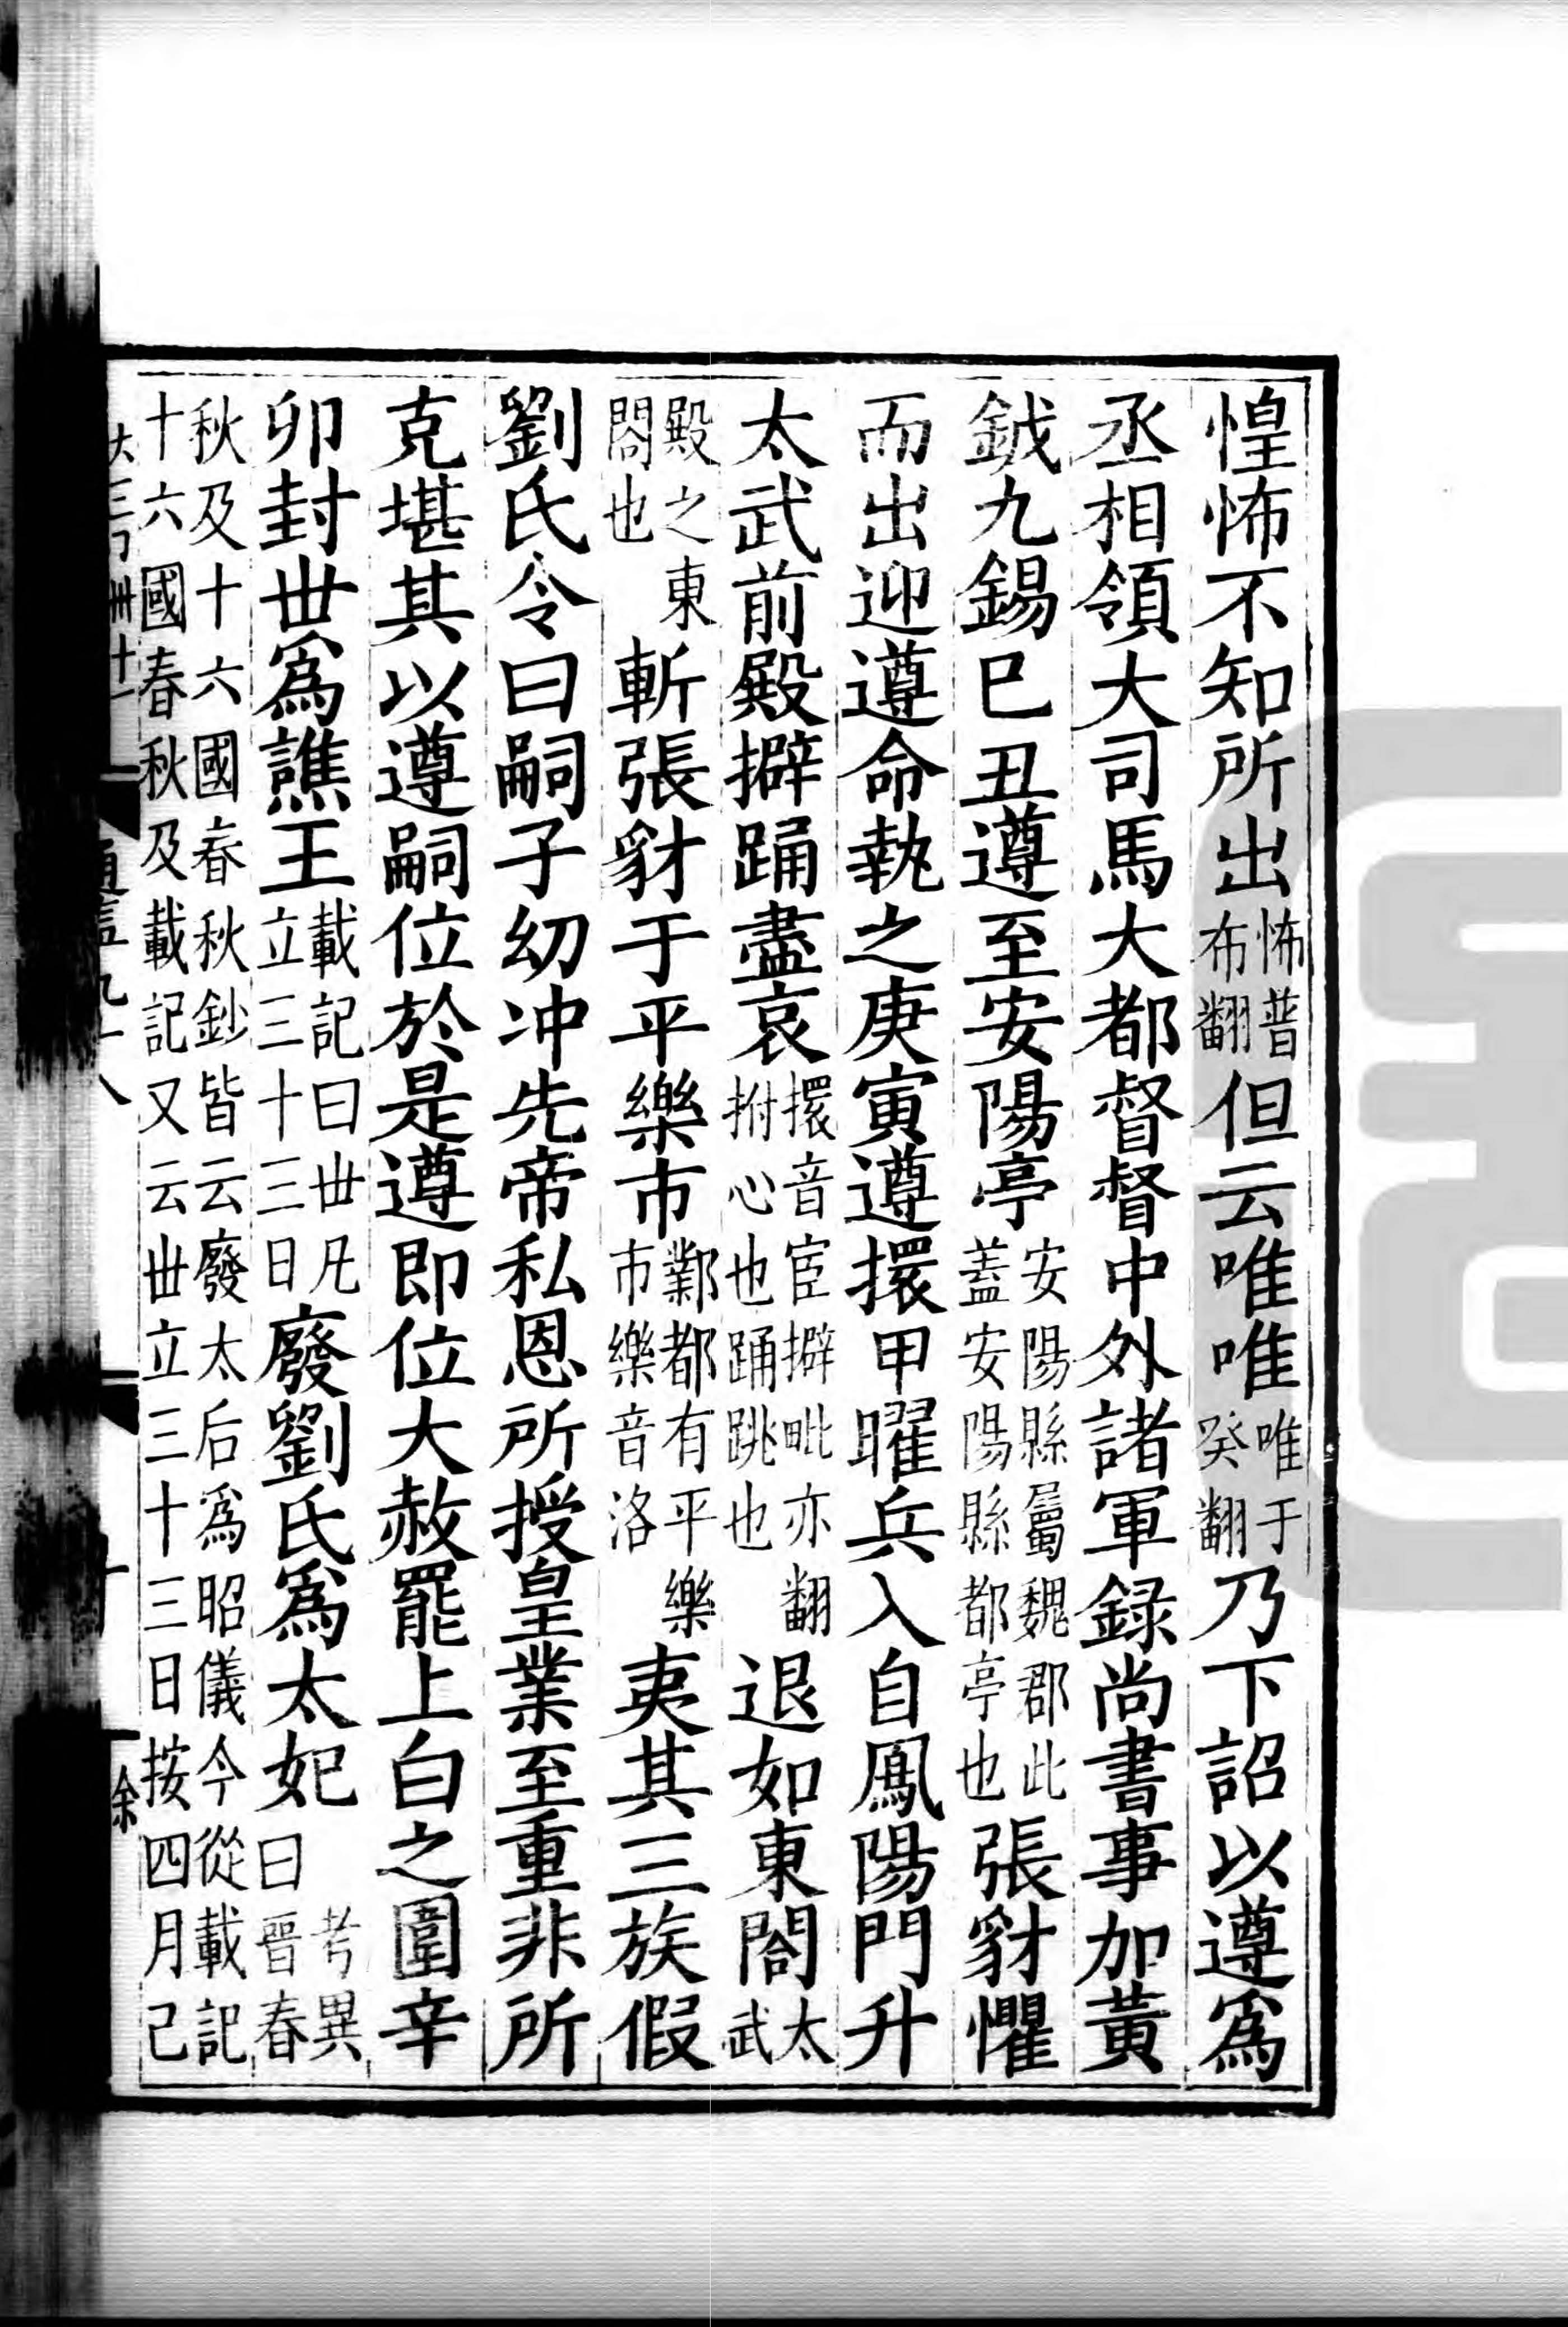 惶怖不知所出怖普布翻但云唯唯唯于癸翻乃下詔以遵爲
丞相領大司馬大都督督中外諸軍録尚書事加黃
鉞九錫巳丑遵至安陽亭安陽縣屬魏郡此蓋安陽縣都亭也張豺懼
而出迎遵命執之庚寅遵擐甲曜兵入自鳳陽門升
太武前殿擗踊盡哀擐音宦擗毗亦翻拊心也踊跳也退如東閤太武
殿之東閤也斬張豺于平樂市鄴都有平樂市樂音洛夷其三族假
劉氏令曰嗣子幼冲先帝私恩所授皇業至重非所
克堪其以遵嗣位於是遵即位大赦罷上白之圍辛
卯封丗爲譙王載記曰丗凡立三十三日廢劉氏爲太妃考異曰晉春
秋及十六國春秋鈔皆云廢太后爲昭儀今從載記
十六國春秋及載記又云丗立三十三日按四月己